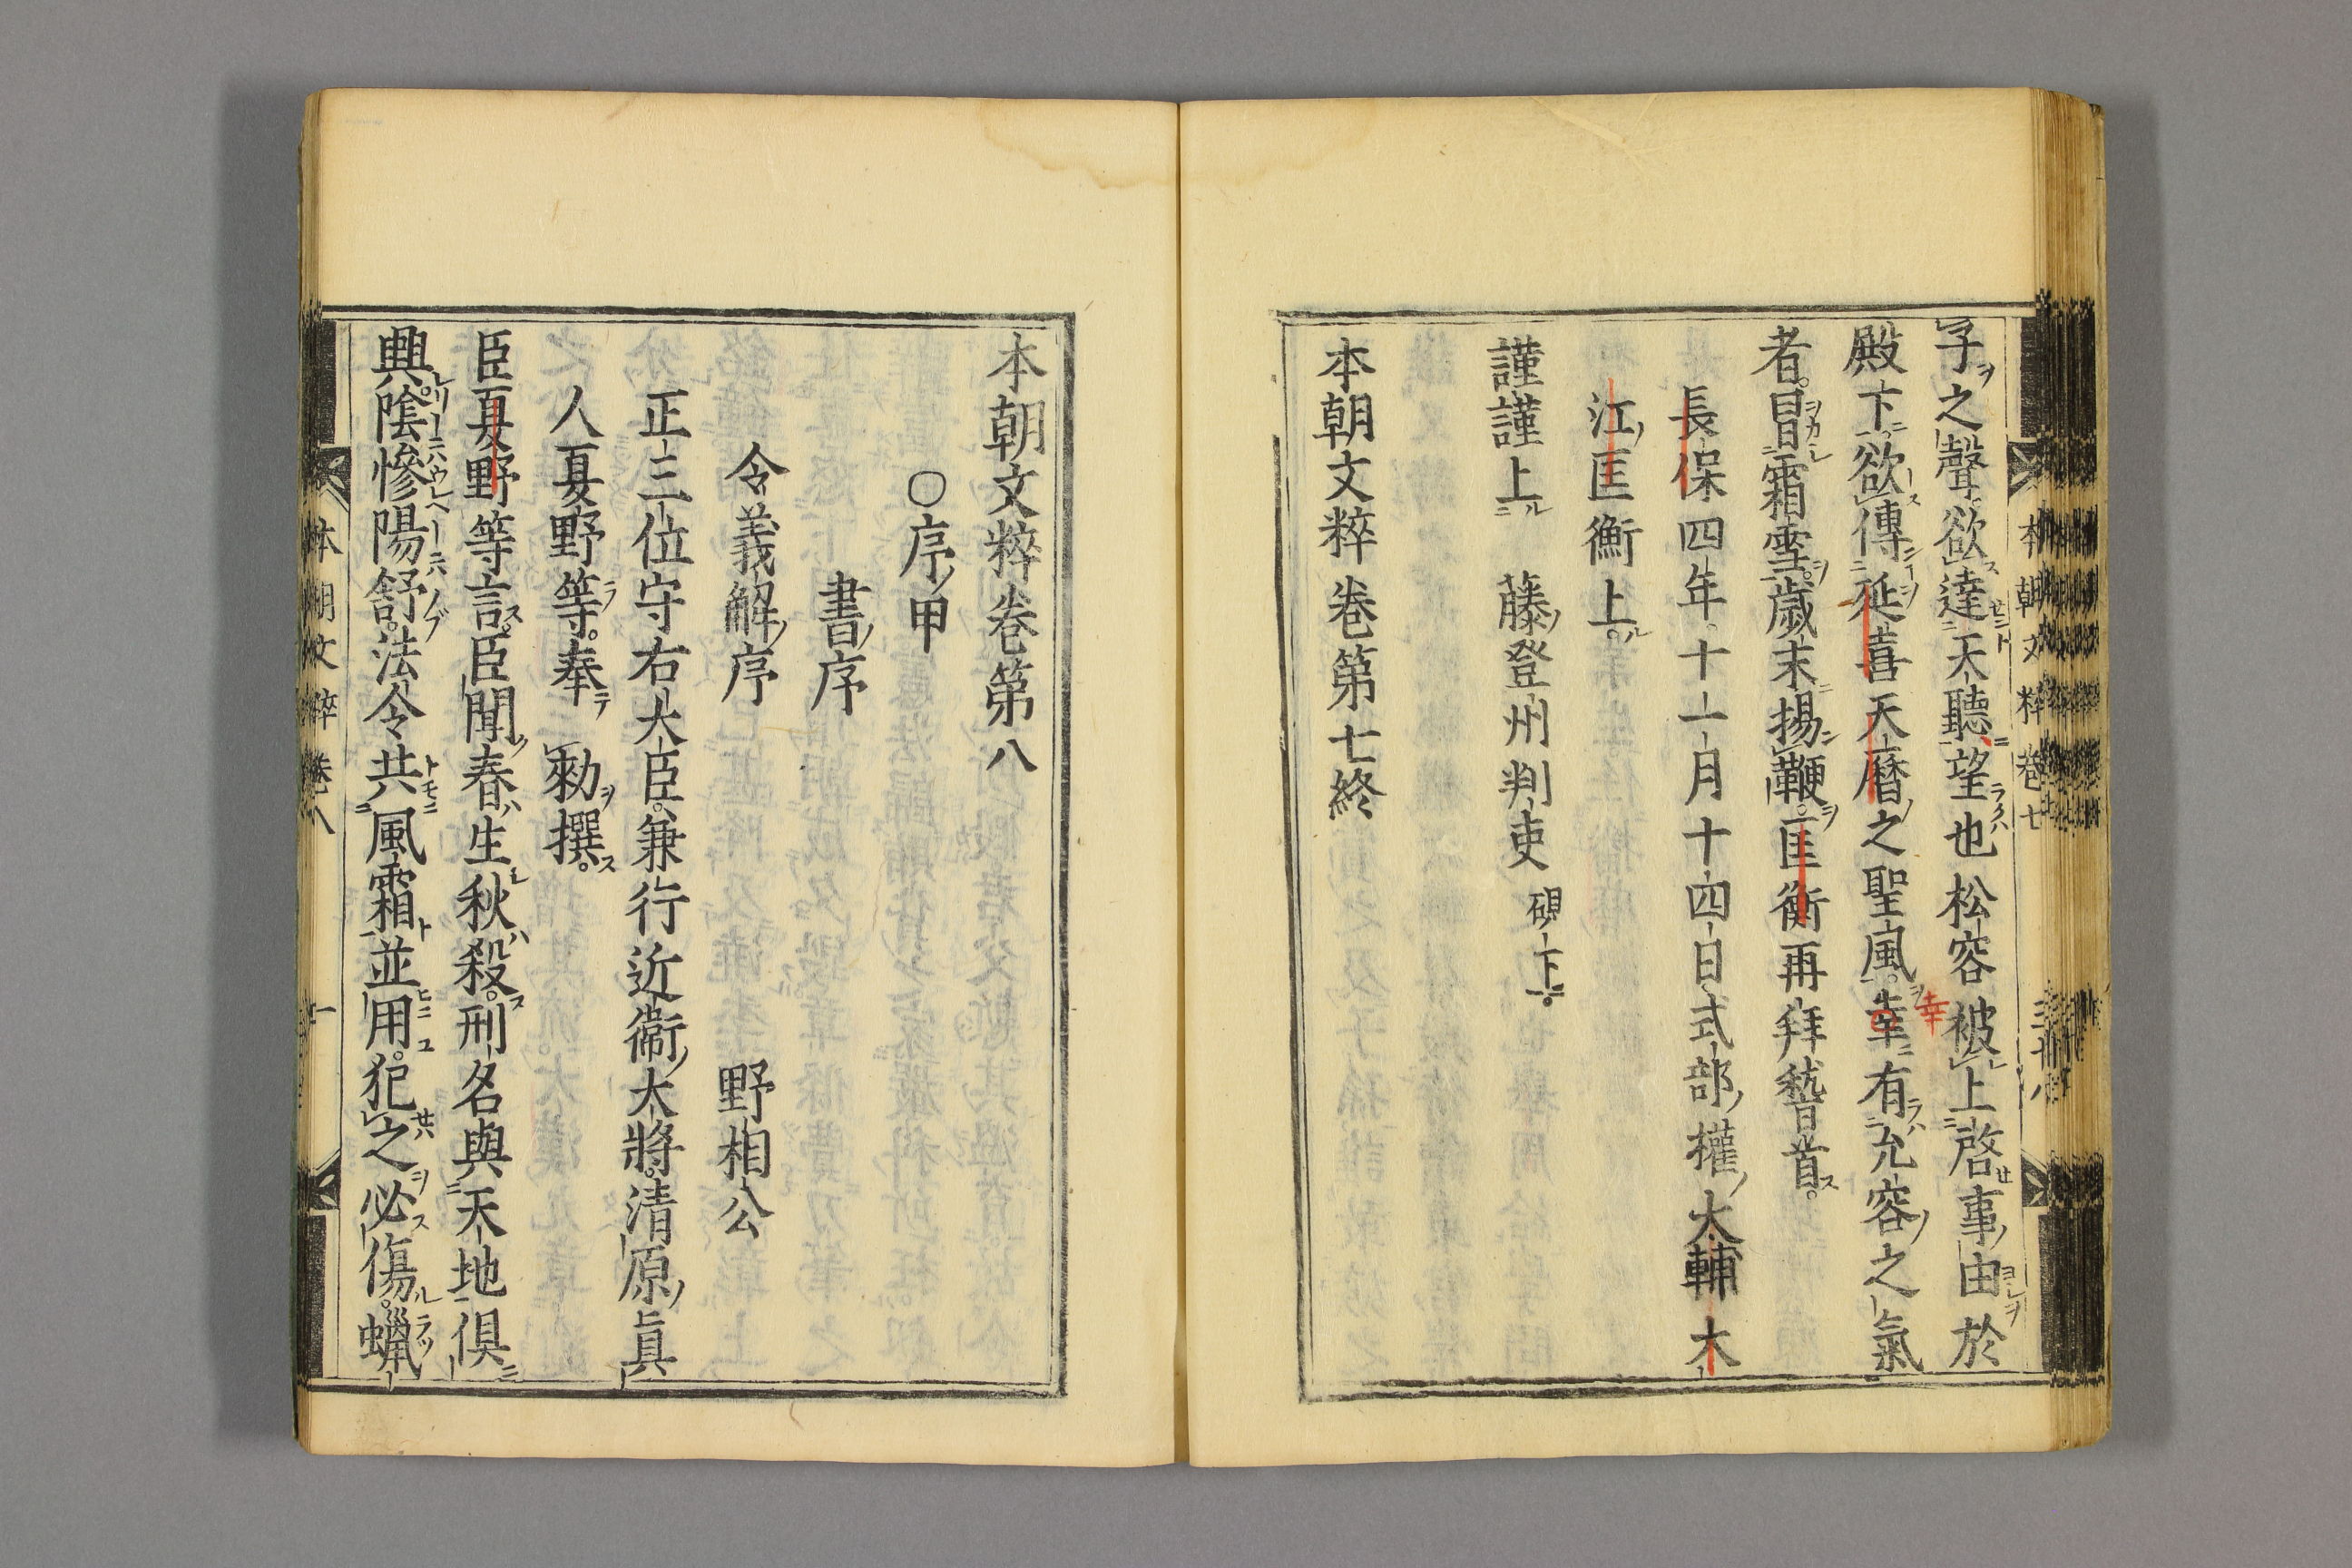 子之聲欲達天聽望也松容被上啓事由於
殿下欲傳延喜天曆之聖風幸有允容之氣
幸
者冒霜雪歲末揚鞭匡衡再拜稽首
長保四年十一月十四日式部權大輔大
江匡衡上
謹謹上　藤登州判吏　硯下
本朝文粹卷第七終
本朝文粹卷七　三十八
本朝文粹卷第八
○序甲
書序
令義解序　野相公
正三位守右大臣兼行近衞大將清原眞
人夏野等奉　勅撰
臣夏野等言臣聞春生秋殺刑名與天地俱
興陰慘陽舒法令共風霜並用犯之必傷蠟
本朝文粹卷八　一